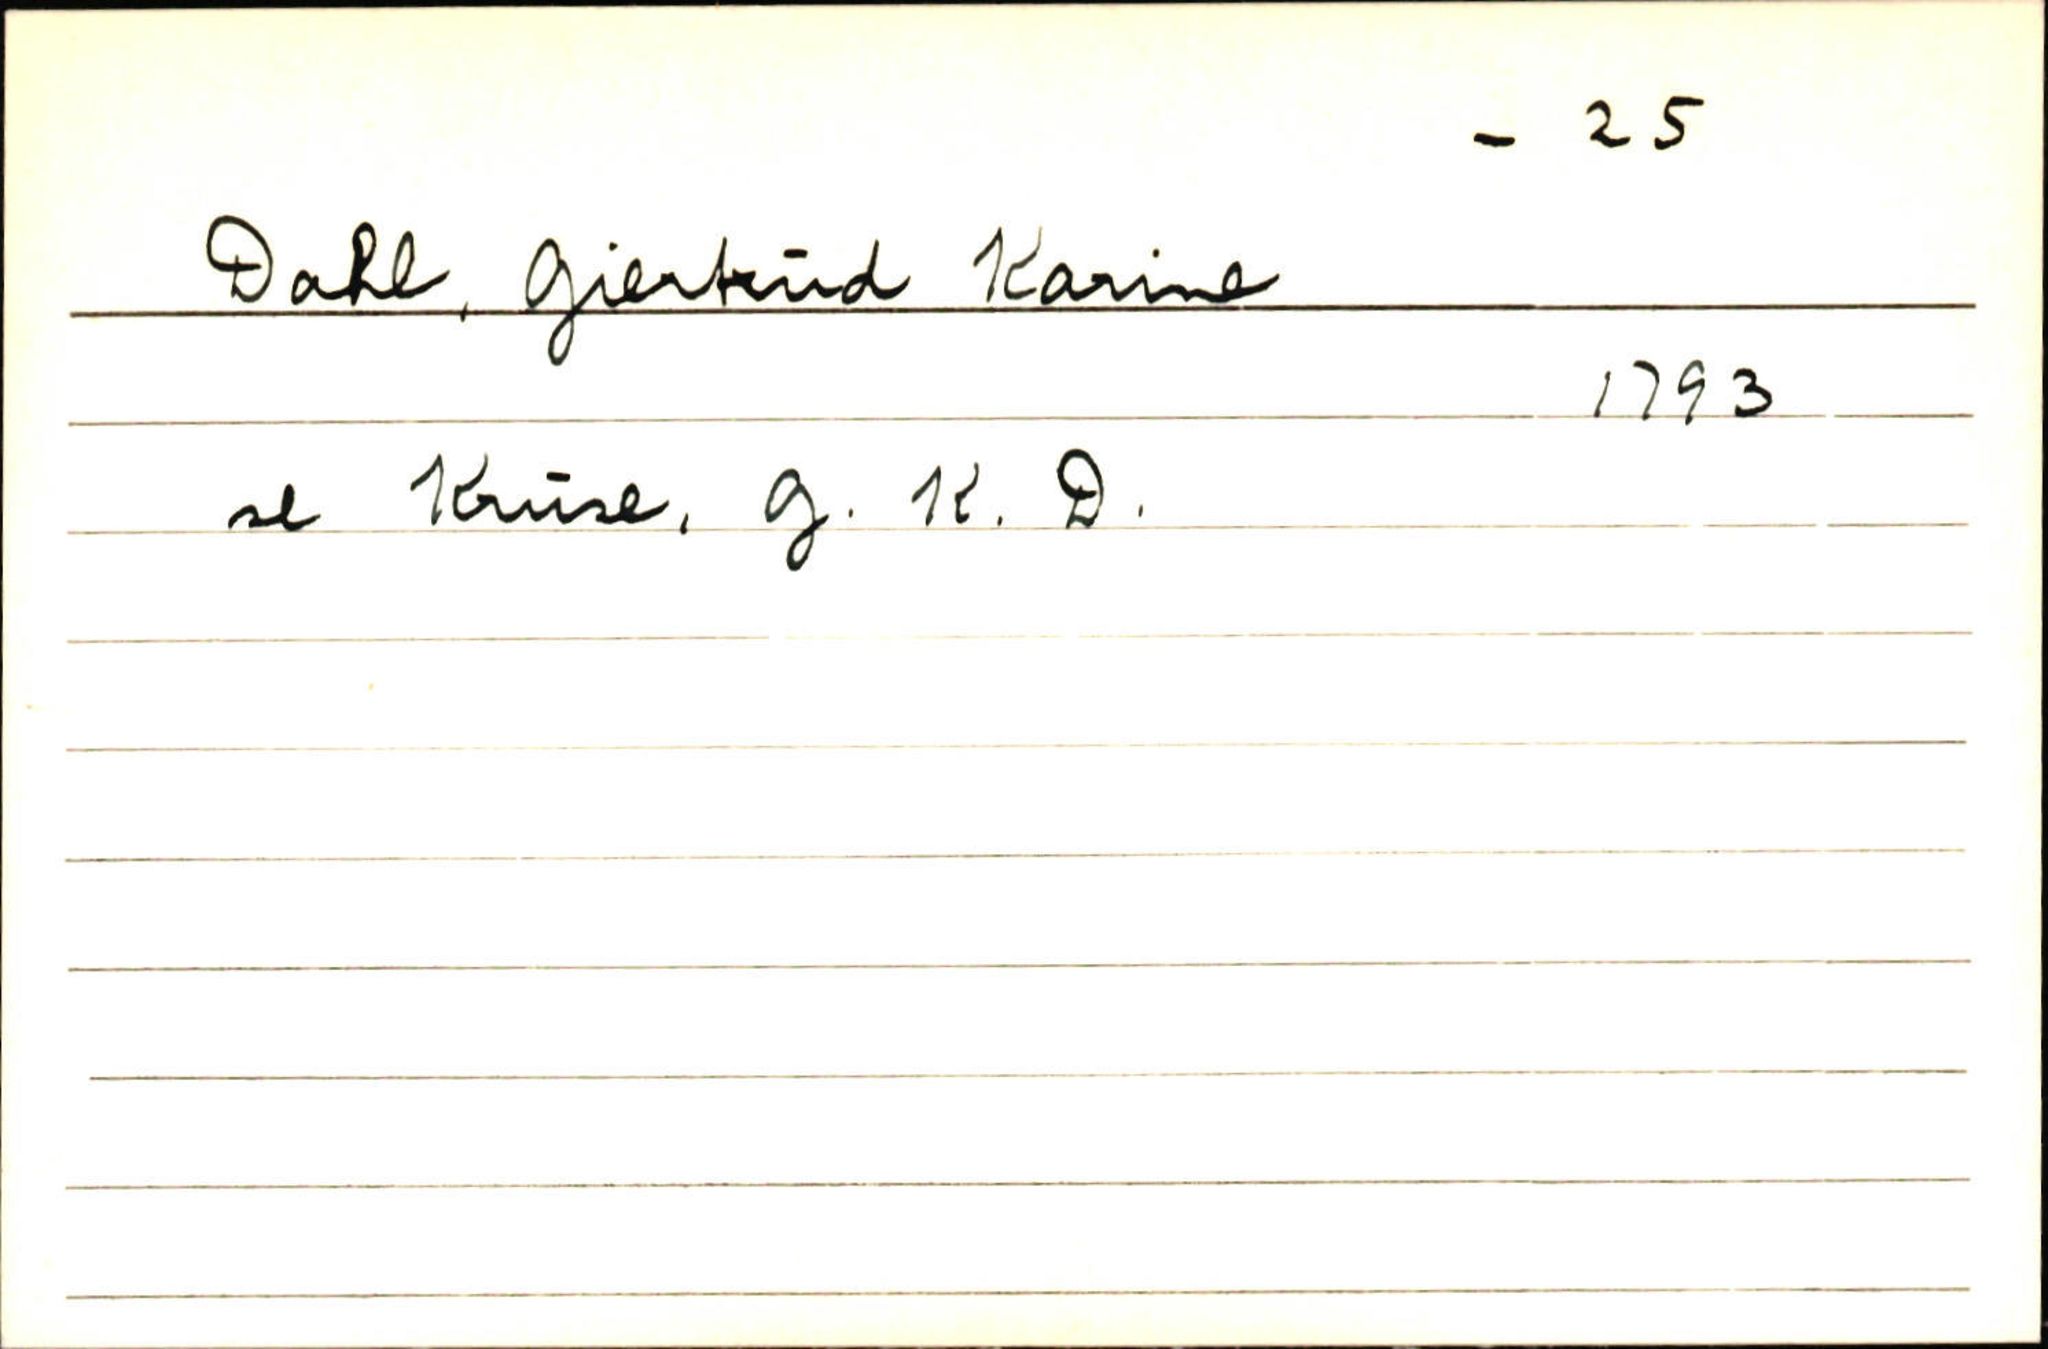 - 25
Dahl, Giertrud Karine
1793
se Kruse, G. K. D.